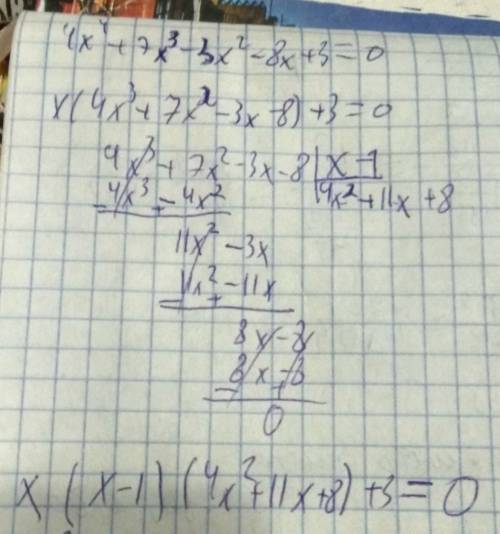 4x⁴ + 7x³ - 3x² - 8x + 3 = 0
x(4x³ + 7x² - 3x - 8) + 3 = 0
4x³ + 7x² - 3x - 8 | x - 1
4x³ - 4x² | 4x² + 11x + 8
11x² - 3x
11x² - 11x
8x - 8
8x - 8
0
x (x - 1) (4x² + 11x + 8) + 3 = 0